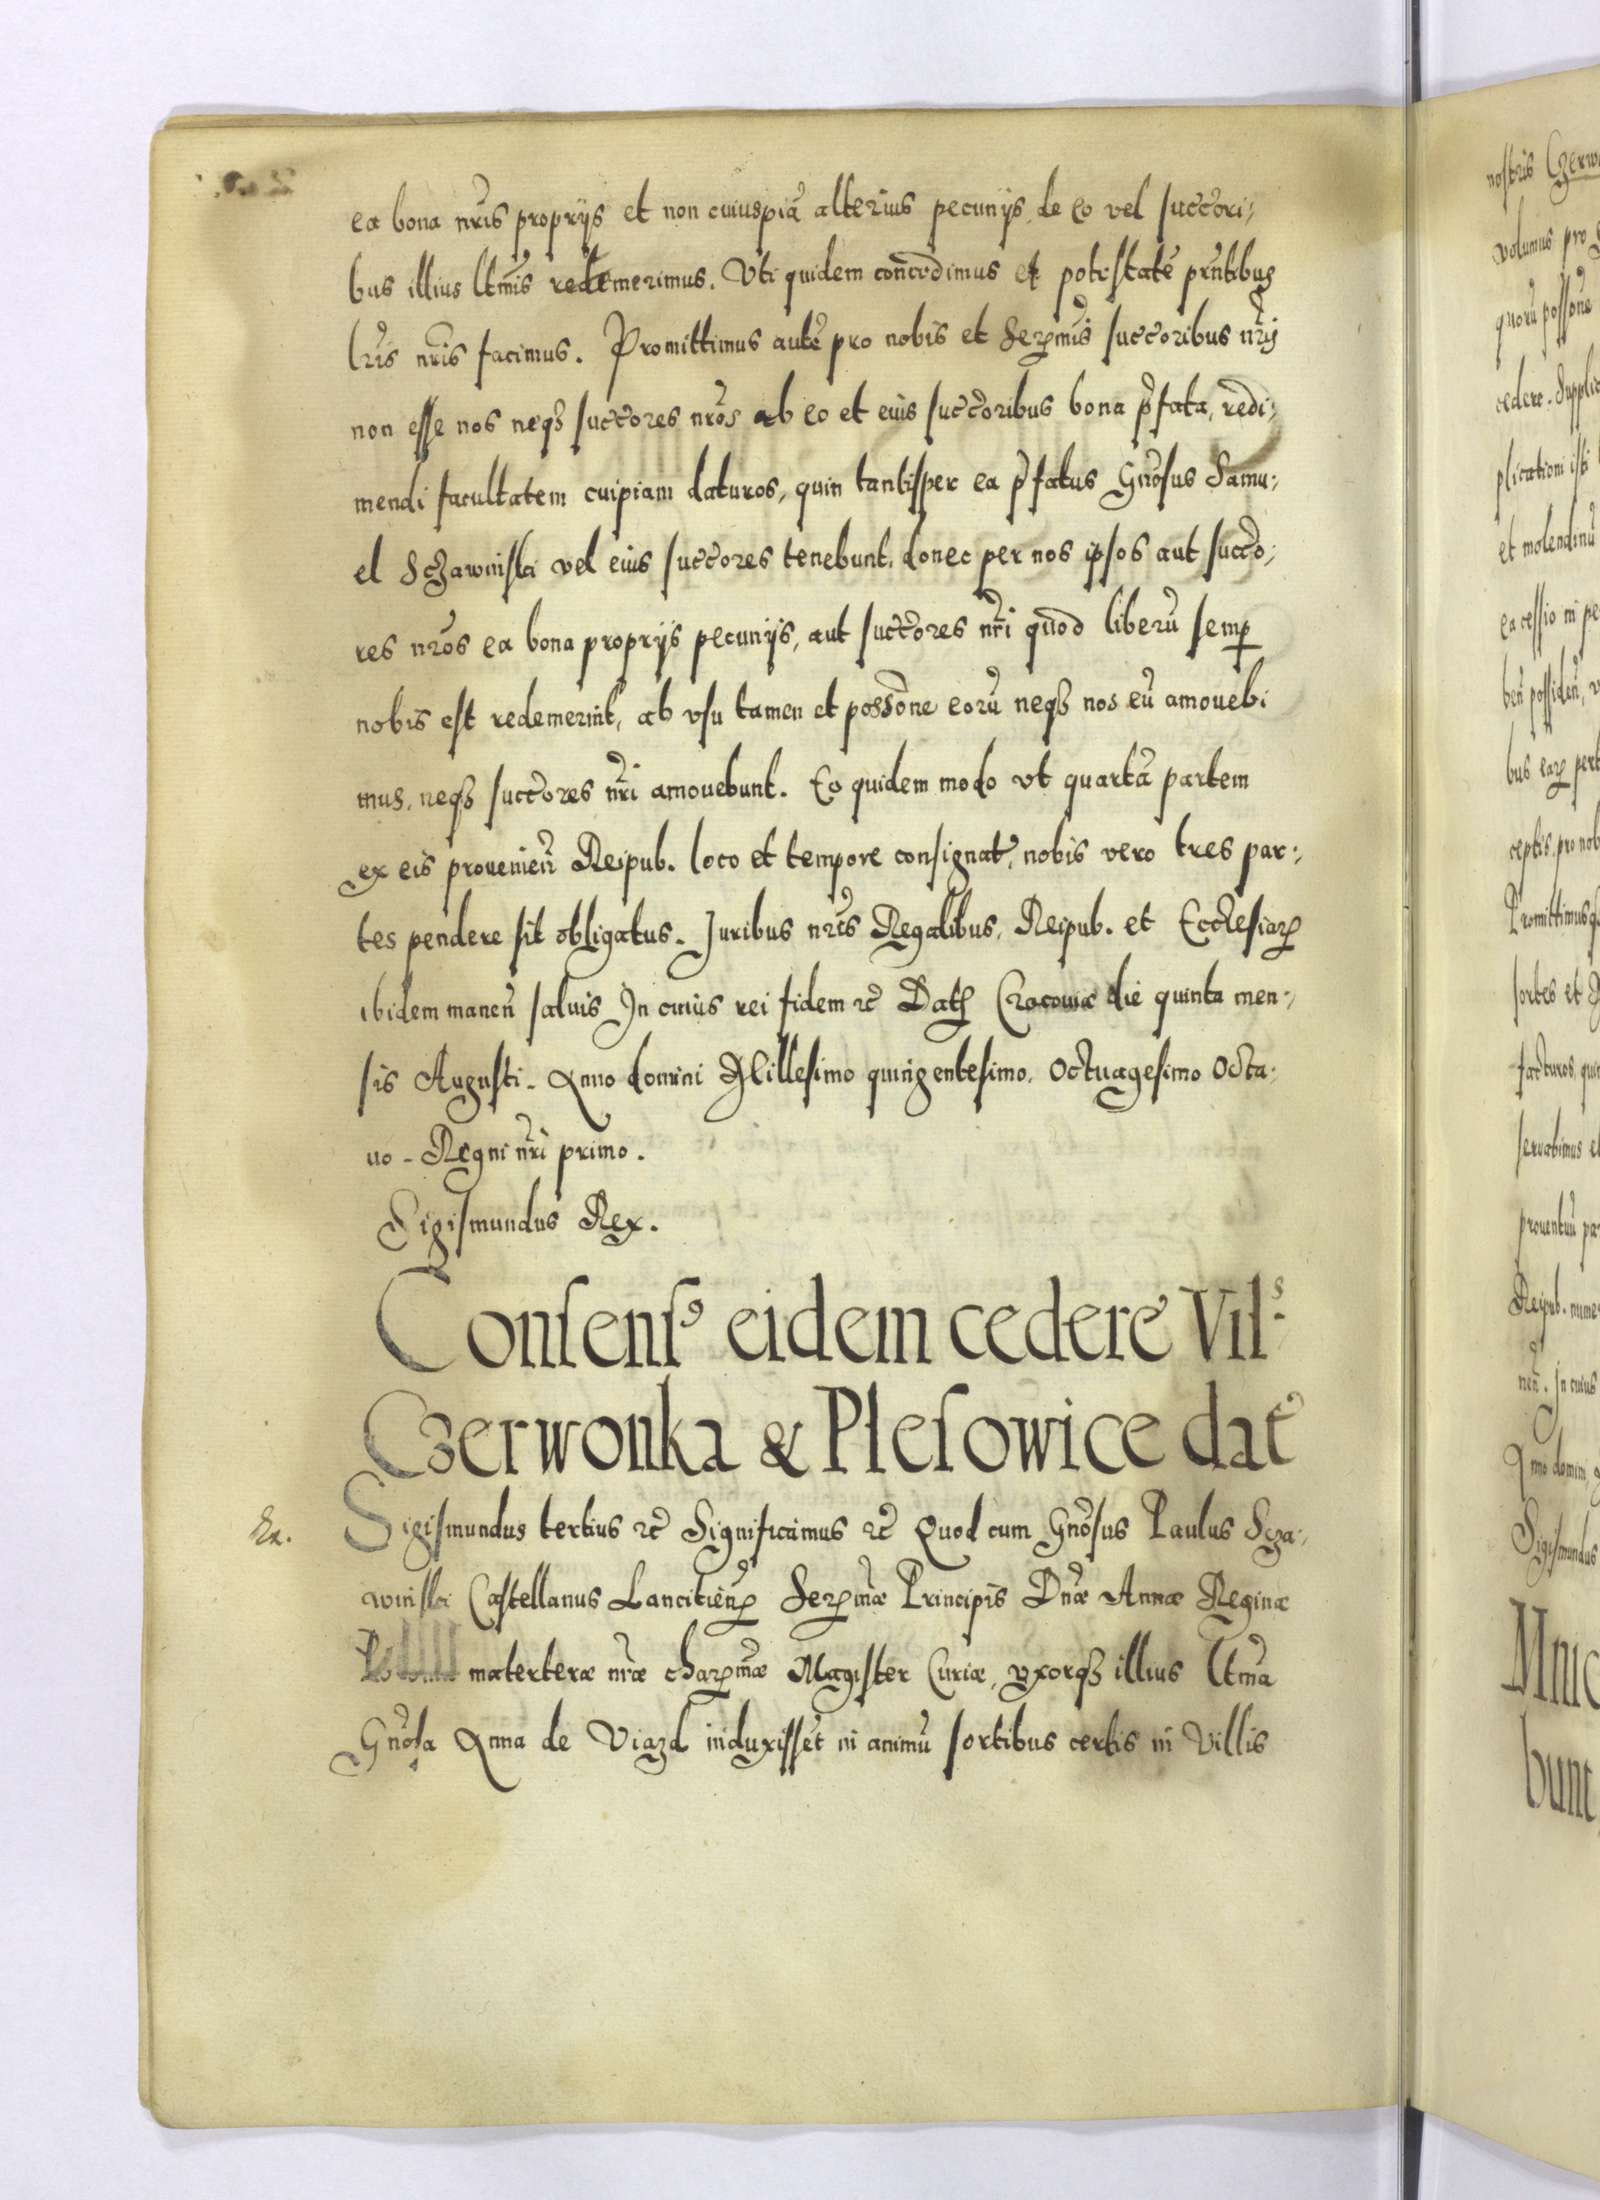 ea bona nr̃is propriis et non cuiuspiã alterius pecuniis, de eo vel succõri:
bus illius ltmis redemerimus. Vti quidem concedimus et potestatẽ pñtibus
lr̃is nr̃is facimus. Promittimus autẽ pro nobis et Serẽmis succõribus nr̃ij
non esse nos neq₃ succõres nr̃os ab eo et eius succõribus bona p̃fata, redi:
mendi facultatem cuipiam daturos, quin tantisper ea p̃fatus Gnõsus Samu:
el Sczawiński vel eius succõres tenebunt, donec per nos ipsos aut succõ:
res nr̃os ea bona propriis pecuniis, aut succõres nr̃i quod liberũ semp
nobis est redemerint, ab vsu tamen et possõne eorũ neq₃ nos eũ amouebi
mus, neq₃ succõres nr̃i amouebunt. Eo quidem modo vt quartã partem
ex eis prouenieñ Reipub. loco et tempore consignat̃, nobis vero tres par:
tes pendere sit obligatus. Juribus nr̃is Regalibus, Reipub. et Ecclesiaꝝ
ibidem maneñ saluis In cuius rei fidem etc̃ Datꝭ Cracouiæ die quinta men:
sis Augusti. Anno domini Millesimo quingentesimo. Octuagesimo Octa:
uo. Regni nr̃i primo.
Sigismundus Rex.
Consens⁹ eidem cedere Vil:s
Czerwonka & Plesowice dat̃
Ex. Sigismundus tertius etc̃ Significamus etc̃ Quod cum Gnõsus Paulus Scza:
winski Castellanus Lanciciẽn Serẽmæ Principis Dñæ Annæ Reginæ
materteræ nr̃æ charẽmæ Magister Curiæ, vxorq₃ illius ltma
Gnõsa Anna de Viazd induxissẽt in animũ sortibus certis in Villis
nostris Czerw
volumus pro
quorũ possõne
cedere. Supplic
plicationi isti
et molendinũ
ea cessio in pe
beñ possideñ,
bus eaꝝ pert
ceptis, pro nob
Promittimusq₃
sortes et
facturos, quin
seruabimus et
prouentuũ par
Reipub. nume
neñ. In cuius
Anno domini
Sigismundus
Mnic
bunt